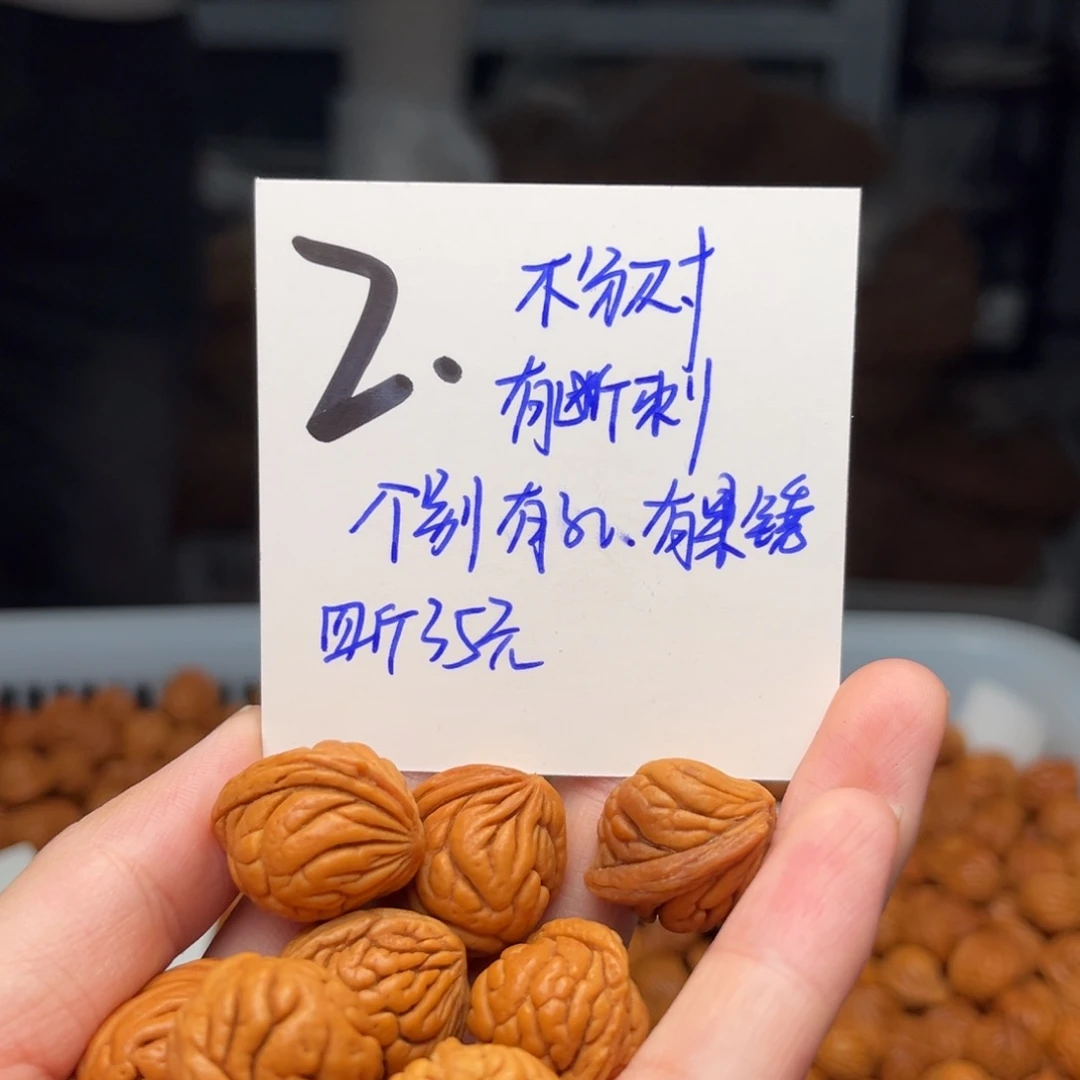 2.
不分对
有断刺
个别有孔、有果锈
四斤35元